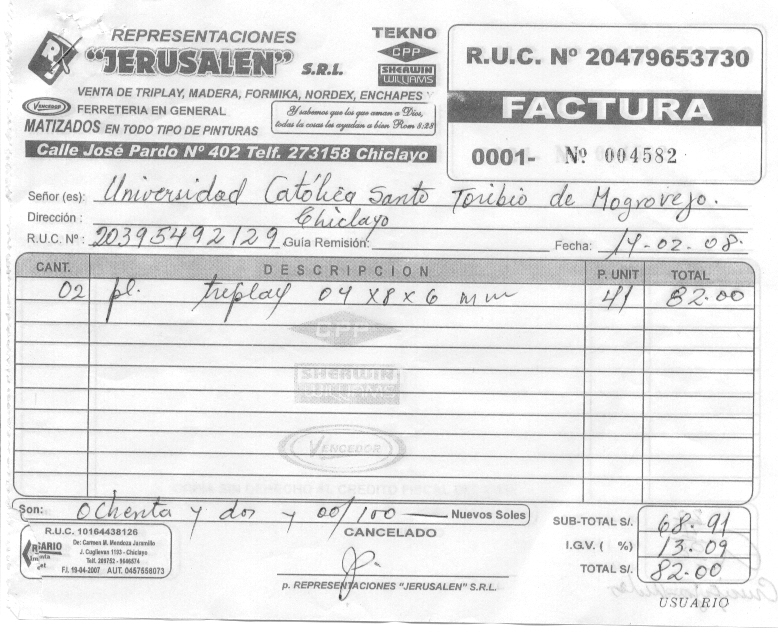 REPRESENTACIONES
"JERUSALEN" S.R.L.
TEKNO
CPP
SHERWIN
WILLIAMS
VENTA DE TRIPLAY, MADERA, FORMIKA, NORDEX, ENCHAPES Y
VENCEDOR FERRETERIA EN GENERAL
MATIZADOS EN TODO TIPO DE PINTURAS
Y sabemos que los que aman a Dios,
todas la cosas les ayudan a bien Rom 8:28
Calle José Pardo Nº 402 Telf. 273158 Chiclayo
R.U.C. Nº 20479653730
FACTURA
0001- Nº 004582
Señor (es): Universidad Católica Santo Toribio de Mogrovejo.
Dirección : Chiclayo
R.U.C. Nº : 20395492129 Guía Remisión: Fecha: 14-02-08.
CANT. DESCRIPCION P. UNIT TOTAL
02 pl. treplay 04 x8x6 mm 41 82.00
CPP
SHERWIN
WILLIAMS
VENCEDOR
Son: Ochenta y dos y 00/100 Nuevos Soles
CANCELADO
p. REPRESENTACIONES "JERUSALEN" S.R.L.
R.U.C. 10164438126
De: Carmen M. Mendoza Jaramillo
J. Cuglievan 1193 - Chiclayo
F.I. 19-04-2007 AUT. 0457558073
SUB-TOTAL S/. 68.91
I.G.V. ( %) 13.09
TOTAL S/. 82.00
USUARIO